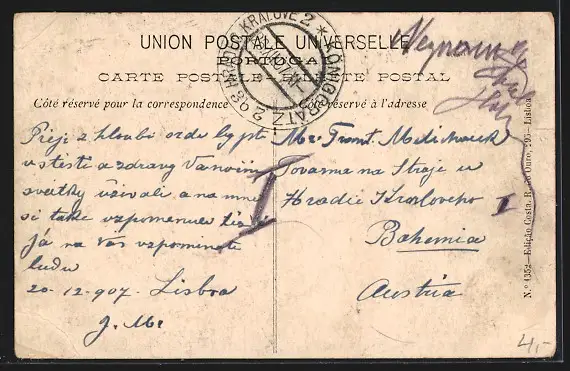 UNION POSTALE UNIVERSELLE
PORTUGAL
CARTE POSTALE — BILHETE POSTAL
Côté réservé pour la correspondence
Côté réservé à l'adresse
HRADEC KRÁLOVÉ 2
KÖNIGGRATZ 2
Preji z hloubi srdce by
v štěstí a zdravy Vanoční
svatky užívali a na mne
si take vzpomenuli
Já na Vas vzpominati
budu
20-12-907. Lisboa
J. M.
Mr Frant.
Tovarna na Stroje v
Hradic Kraloveho
Bohemia
Austria
I
N.º 1352 — Edição Costa, R. do Ouro, 295 — Lisboa
4,-